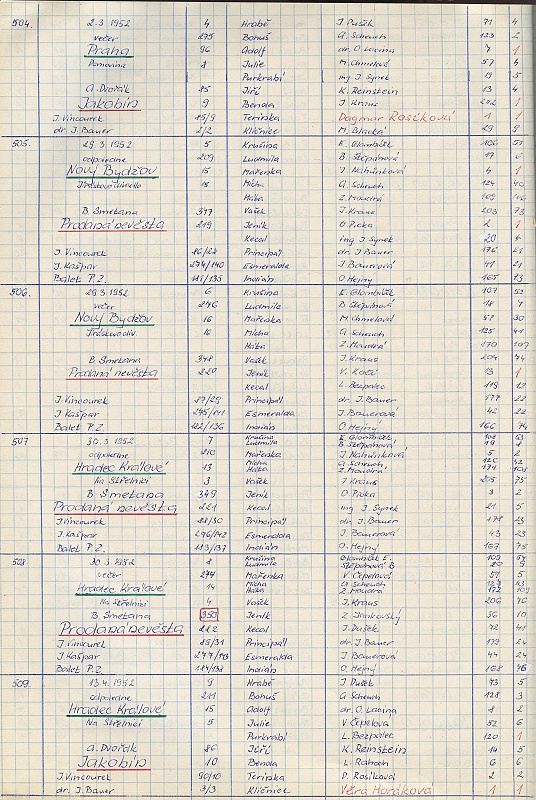 504. 2.3 1952 4 Hrabě J. Dušek 71 4
večer 275 Bohuš A. Scheuch 123 2
Praha 96 Adolf dr. O. Lacina 7 1
8 Julie M. Chmelová 57 4
Purkrabí ing J. Synek 19 5
A. Dvořák 85 Jiří K. Reinstein 13 4
Jakobín 9 Benda J. Kraus 202 1
J. Vincourek 15/9 Terinka Dagmar Rosíková 1 1
dr. J. Bauer 2/2 Klíčnice M. Blacká 29 9
505. 29.3 1952 5 Krušina E. Glombíček 106 51
odpoledne 209 Ludmila B. Štěpánová 17 6
Nový Bydžov 15 Mařenka J. Nahunková 4 1
15 Mícha A. Scheuch 124 40
Háta Z. Moudrá 109
B. Smetana 347 Vašek J. Kraus 203 73
Prodaná nevěsta 219 Jeník O. Picka 2 1
Kecal ing J. Synek 20 4
J. Vincourek 86/28 Principál dr. J. Bauer 176 21
J. Kašpar 274/140 Esmeralda J. Bauerová 41 21
Balet P.Z. 111/135 Indián O. Hejný 165 73
506. 29.3 1952 6 Krušina E. Glombíček 107 52
večer 276 Ludmila B. Štěpánová 18 7
Nový Bydžov 16 Mařenka M. Chmelová 58 30
16 Mícha A. Scheuch 125 41
Háta Z. Moudrá 170 107
B. Smetana 348 Vašek J. Kraus 204 74
Prodaná nevěsta 220 Jeník V. Kočí 13 1
Kecal L. Bezpalec 119 12
J. Vincourek 87/29 Principál dr. J. Bauer 177 22
J. Kašpar 275/141 Esmeralda J. Bauerová 42 22
Balet P.Z. 112/136 Indián O. Hejný 166 74
507 30.3. 1952 7 Krušina E. Glombíček 108 53
Ludmila B. Štěpánová 19 8
odpoledne 210 Mařenka J. Nahunková 5 2
Hradec Králové 13 Mícha A. Scheuch 126 42
Háta Z. Moudrá 171 108
Na Střelnici 3 Vašek J. Kraus 205 75
B. Smetana 349 Jeník O. Picka 3 2
Prodaná nevěsta 221 Kecal ing J. Synek 21 5
J. Vincourek 88/30 Principál dr. J. Bauer 178 23
J. Kašpar 276/142 Esmeralda J. Bauerová 43 23
Balet P.Z. 113/137 Indián O. Hejný 167 75
508 30.3 1952 8 Krušina Glombíček E. 109 54
Ludmila Štěpánová B 20 9
večer 277 Mařenka V. Čepelová 51 5
Hradec Králové 14 Mícha A. Scheuch 127 43
Háta Z. Moudrá 172 109
Na Střelnici 4 Vašek J. Kraus 206 76
B. Smetana 350 Jeník Z. Jankovský 56 10
Prodaná nevěsta 222 Kecal J. Dušek 72 41
J. Vincourek 89/31 Principál dr. J. Bauer 179 24
J. Kašpar 277/143 Esmeralda J. Bauerová 44 24
Balet P.Z. 114/138 Indián O. Hejný 168 76
509. 13.4. 1952 9 Hrabě J. Dušek 73 5
odpoledne 211 Bohuš A. Scheuch 128 3
Hradec Králové 15 Adolf dr. O. Lacina 8 2
Na Střelnici 5 Julie V. Čepelová 52 6
Purkrabí L. Bezpalec 120 1
A. Dvořák 86 Jiří K. Reinstein 14 5
Jakobín 10 Benda L. Rahoch 6 6
J. Vincourek 90/10 Terinka D. Rosíková 2 2
dr. J. Bauer 3/3 Klíčnice Věra Horáková 1 1